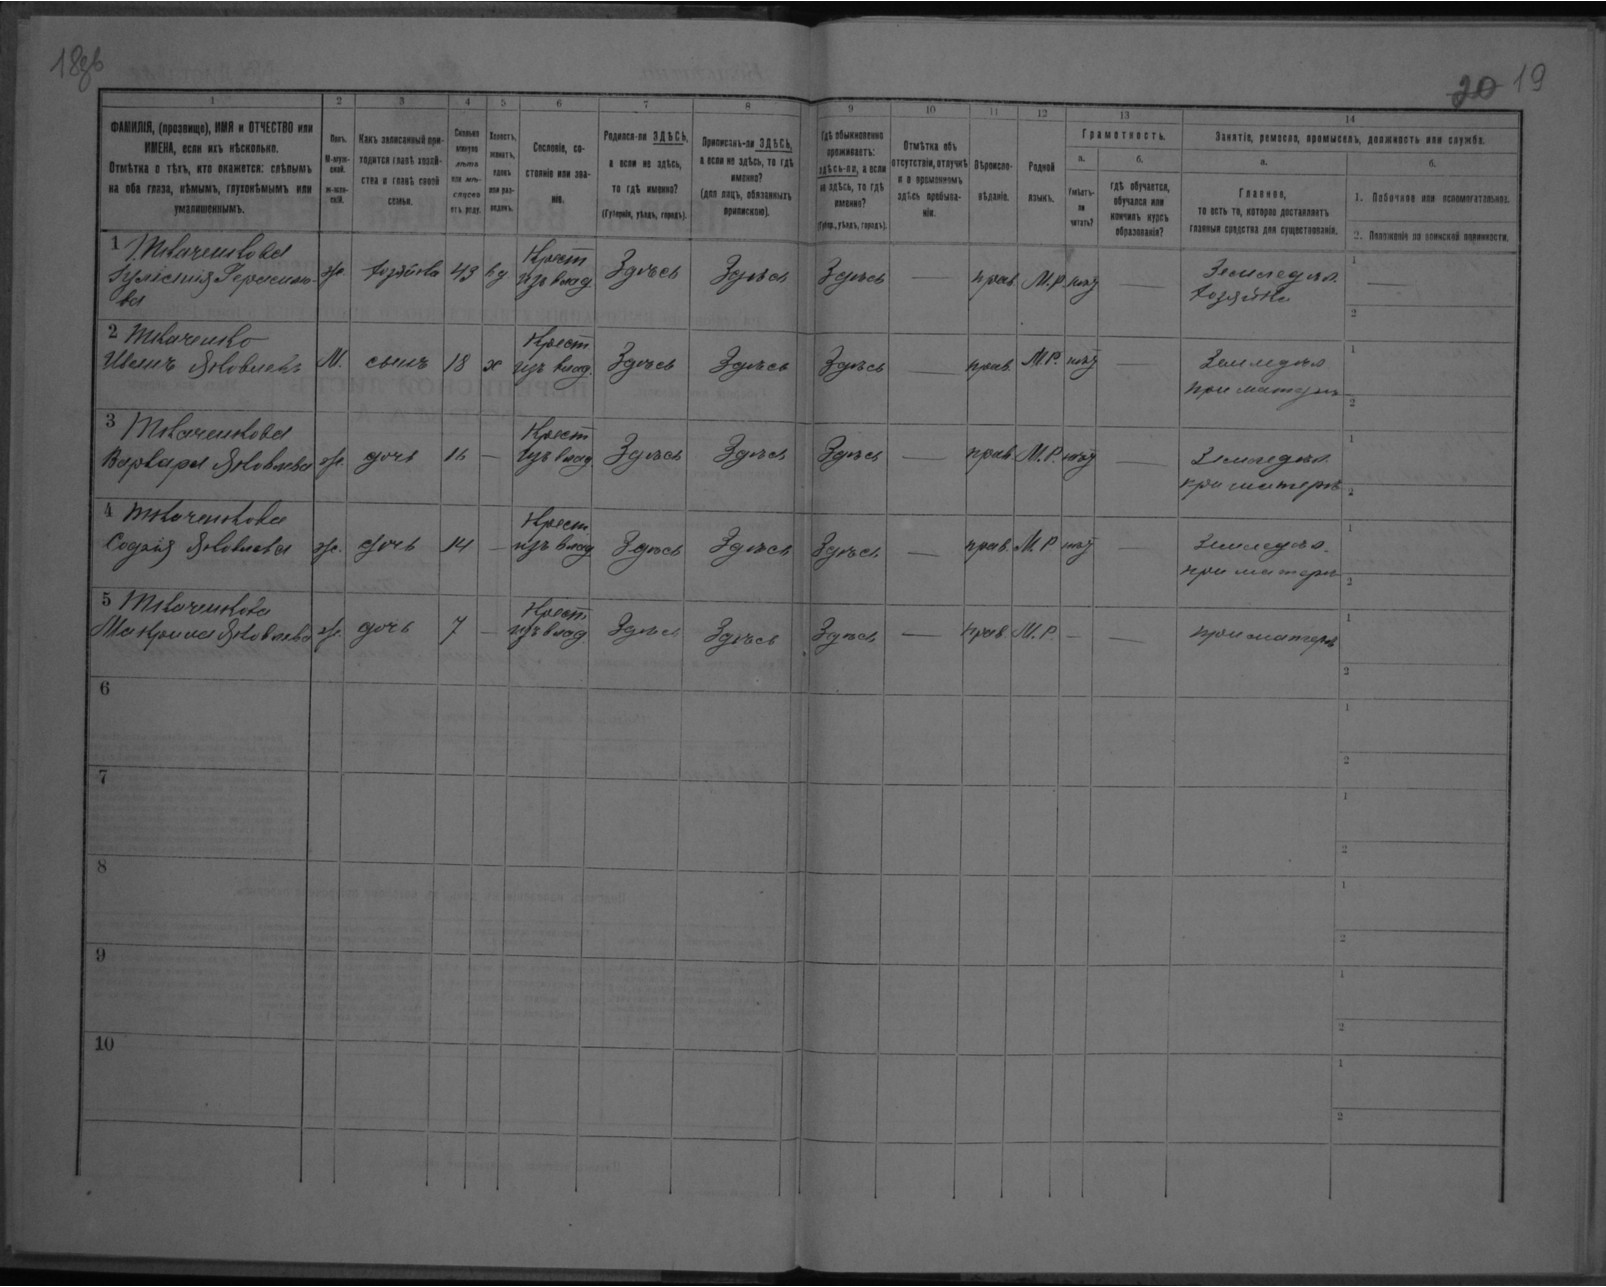 18об
20 19
1
2
3
4
5
6
7
8
9
10
11
12
13
14
ФАМИЛІЯ, (прозвище), ИМЯ и ОТЧЕСТВО или
ИМЕНА, если ихъ нѣсколько.
Отмѣтка о тѣхъ, кто окажется: слѣпымъ
на оба глаза, нѣмымъ, глухонѣмымъ или
умалишеннымъ.
Полъ.
М-муж-
ской.
ж-жен-
скій.
Какъ записанный при-
ходится главѣ хозяй-
ства и главѣ своей
семьи.
Сколько
минуло
лѣтъ
или мѣ-
сяцевъ
отъ роду.
Холостъ,
женатъ,
вдовъ
или раз-
веденъ.
Сословіе, со-
стояніе или зва-
ніе.
Родился-ли ЗДѢСЬ,
а если не здѣсь,
то гдѣ именно?
(Губернія, уѣздъ, городъ).
Приписанъ-ли ЗДѢСЬ,
а если не здѣсь, то гдѣ
именно?
(для лицъ, обязанныхъ
припискою).
Гдѣ обыкновенно
проживаетъ:
здѣсь-ли, а если
не здѣсь, то гдѣ
именно?
(Губер., уѣздъ, городъ).
Отмѣтка объ
отсутствіи, отлучкѣ
и о временномъ
здѣсь пребыва-
ніи.
Вѣроиспо-
вѣданіе.
Родной
языкъ.
Грамотность.
а.
Умѣетъ-
ли
читать?
б.
гдѣ обучается,
обучался или
кончилъ курсъ
образованія?
Занятіе, ремесло, промыселъ, должность или служба.
а.
Главное,
то есть то, которое доставляетъ
главныя средства для существованія.
б.
1. Побочное или вспомогательное.
2. Положеніе по воинской повинности.
1 Ткаченкова
Герасимо-
ва
ж. хозяйка 43 вд Крест
изъ влад. Здѣсь Здѣсь Здѣсь — прав. М.Р. нѣт —
Земледѣл.
хозяйка
1 —
2
2 Ткаченко
Яковлевъ М. сынъ 18 х Крест
изъ влад. Здѣсь Здѣсь Здѣсь — прав. М.Р. нѣт —
Земледѣл
при матери
1
2
3 Ткаченкова
Варвара Яковлева ж. дочь 16 — Крест
изъ влад. Здѣсь Здѣсь Здѣсь — прав. М.Р. нѣт —
Земледѣл.
при матери
1
2
4 Ткаченкова
Софія Яковлева ж. дочь 14 — Крест
изъ влад Здѣсь Здѣсь Здѣсь — прав. М.Р. нѣт —
Земледѣл.
при матери
1
2
5 Ткаченкова
Макрина Яковлева ж. дочь 7 — Крест.
изъ влад. Здѣсь Здѣсь Здѣсь — прав. М.Р. — —
при матери
1
2
6
1
2
7
1
2
8
1
2
9
1
2
10
1
2